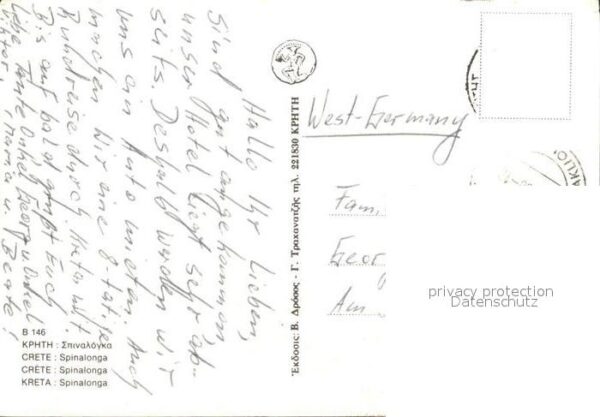 Hallo Ihr Lieben,
Sind gut angekommen
unser Hotel liegt sehr ab-
seits. Deshalb werden wir
uns ein Auto mieten. Auch
machen wir eine 8-tat.
Rundreise durch Kreta mit.
Bis auf bald grüßt Euch
Liebe Tante Onkel Georg u.
Viktor, Maria u. Beate!
B 146
ΚΡΗΤΗ : Σπιναλόγκα
CRETE : Spinalonga
CRÈTE : Spinalonga
KRETA : Spinalonga
Ἔκδοσις: Β. Δρόσος - Γ. Τραχανατζῆς τηλ. 221830 ΚΡΗΤΗ
West-Germany
Fam.
Geor
Am
ΑΚΛΙΟ
privacy protection
Datenschutz